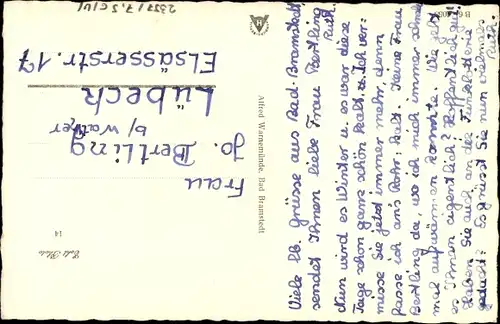 Viele lb. Grüsse aus Bad-Bramstedt
sendet Ihnen liebe Frau Bertling
Ruth.
Nun wird es Winter u. es war diese
Tage schon ganz schön kalt. Ich ver-
misse Sie jetzt immer mehr, denn
fasse ich an's Rohr: kalt. Keine Frau
Bertling da, wo ich mich immer
mal aufwärmen konnte. Wie geht
es Ihnen eigentlich? Hoffentlich gut.
Haben Sie auch an die
gedacht? Es grüsst Sie nun vielmals
Ruth.
Alfred Warnemünde, Bad Bramstedt
Frau
Jo. Bertling
b/ Walter
Lübeck
Elsässerstr. 17
14